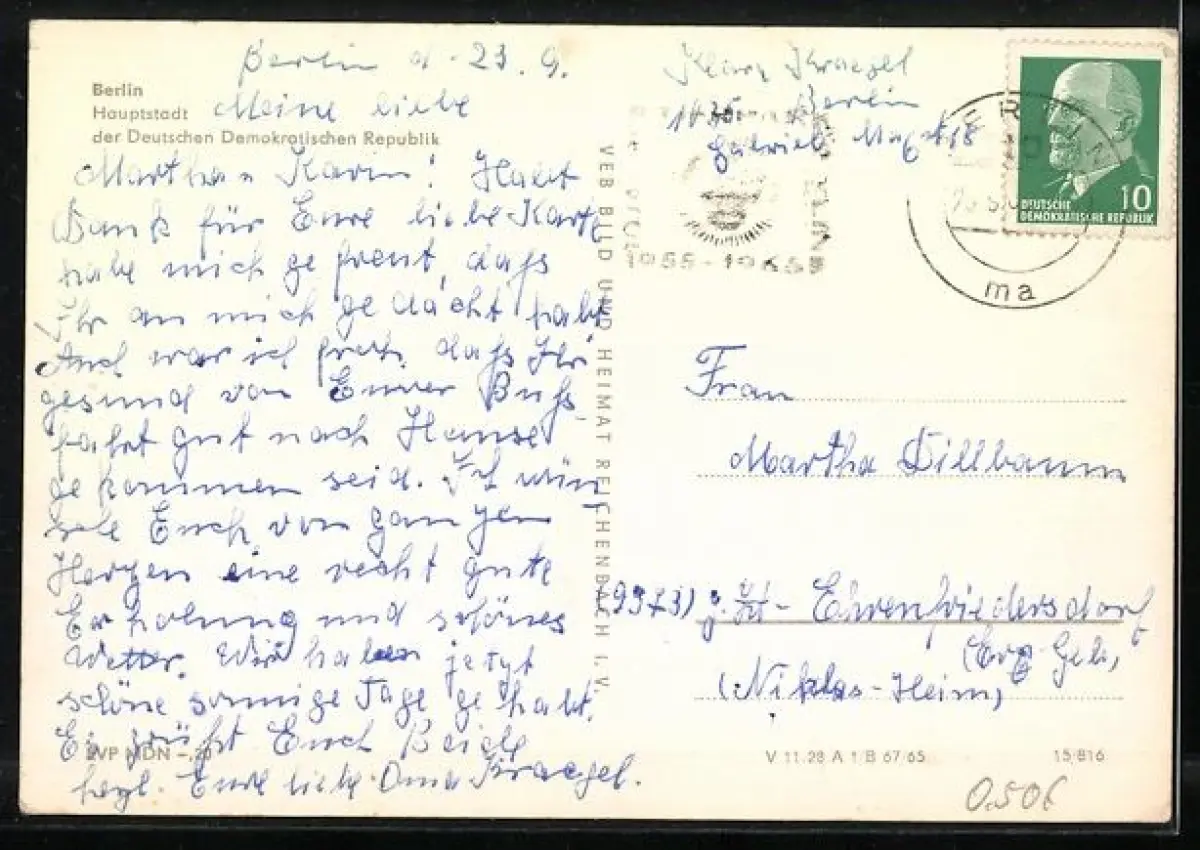 Berlin d. 23. 9.
Berlin
Hauptstadt
der Deutschen Demokratischen Republik
Meine liebe
Martha u Karin! Habt
Dank für Eure liebe Karte
habe mich gefreut, dass
Ihr an mich gedacht habt
Auch war ich froh, dass Ihr
gesund von Eurer Buss
fahrt gut nach Hause
gekommen seid. Ich wün
sche Euch von ganzen
Herzen eine recht gute
Erholung und schönes
Wetter. Wir haben jetzt
schöne sonnige Tage gehabt.
Es grüßt Euch Beide
hzl. Eure liebe Oma Kraegel.
EVP MDN -,20
VEB BILD UND HEIMAT REICHENBACH I. V.
Klara Kraegel
Berlin
1955-1965
BERLIN
ma
10
DEUTSCHE
DEMOKRATISCHE REPUBLIK
Frau
Martha Dillbaum
(9373) z. Zt - Ehrenfriedersdorf
(Erzgeb,
(Niklas-Heim)
V 11.28 A 1 B 67/65
15/816
0.506